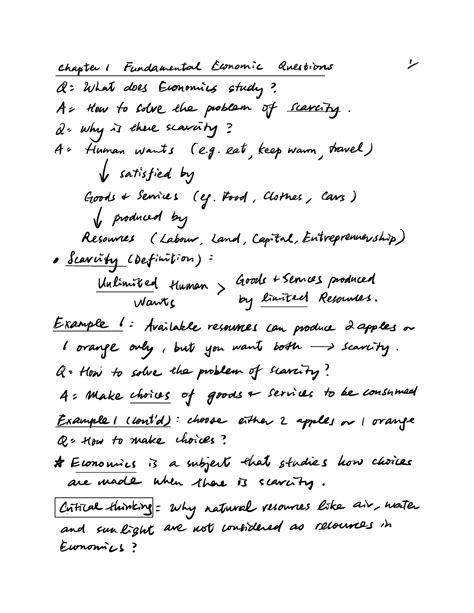 Chapter 1 Fundamental Economic Questions
Q: What does Economics study?
A: How to solve the problem of scarcity.
Q: Why is there scarcity?
A: Human wants (e.g. eat, keep warm, travel)
↓ satisfied by
Goods & Services (eg. Food, Clothes, Cars)
↓ produced by
Resources (Labour, Land, Capital, Entrepreneurship)
• Scarcity (Definition):
Unlimited Human Wants > Goods & Services produced by limited Resources.
Example 1: Available resources can produce 2 apples or
1 orange only, but you want both → scarcity.
Q: How to solve the problem of scarcity?
A: Make choices of goods & services to be consumed
Example 1 (cont'd): choose either 2 apples or 1 orange
Q: How to make choices?
* Economics is a subject that studies how choices
are made when there is scarcity.
Critical thinking: Why natural resources like air, water
and sunlight are not considered as resources in
Economics?